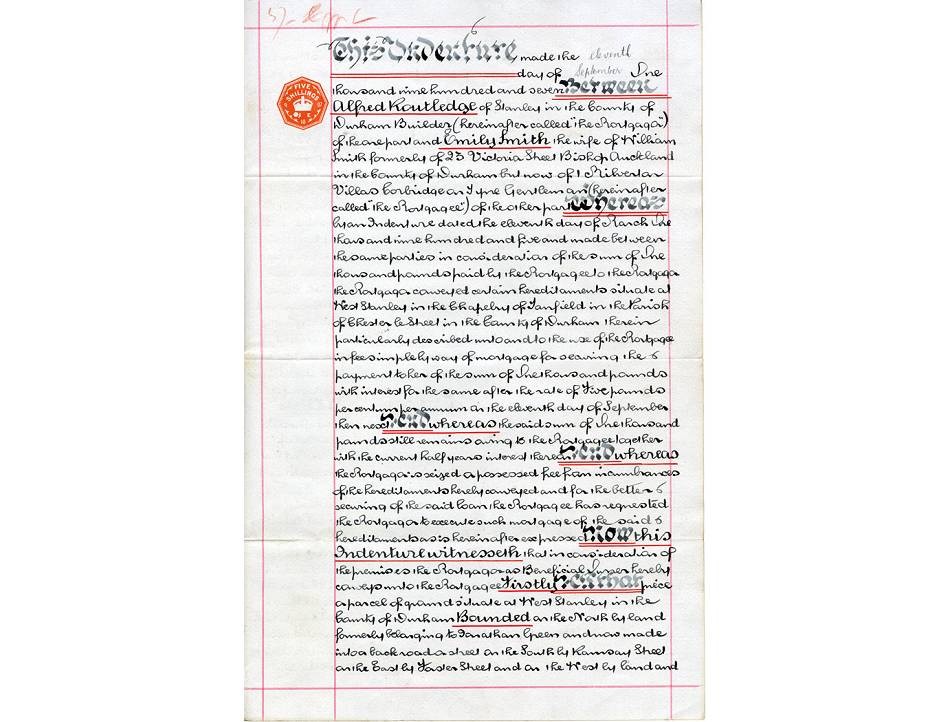 This Indenture made the eleventh
day of September One
thousand nine hundred and seven Between
Alfred Routledge of Stanley in the County of
Durham Builder (hereinafter called "the Mortgagor")
of the one part and Emily Smith the wife of William
Smith formerly of 23 Victoria Street Bishop Auckland
in the County of Durham but now of 1
Villas Corbridge on Tyne Gentleman (hereinafter
called "the Mortgagee") of the other part Whereas
by an Indenture dated the eleventh day of March One
thousand nine hundred and five and made between
the same parties in consideration of the sum of One
thousand pounds paid by the Mortgagee to the Mortgagor
the Mortgagor conveyed certain hereditaments situate at
West Stanley in the Chapelry of Tanfield in the Parish
of Chester le Street in the County of Durham therein
particularly described unto and to the use of the Mortgagee
in fee simple by way of mortgage for securing the
payment to her of the sum of One thousand pounds
with interest for the same after the rate of Five pounds
per centum per annum on the eleventh day of September
then next And whereas the said sum of One thousand
pounds still remains owing to the Mortgagee together
with the current half years interest thereon And whereas
the Mortgagor is seized or possessed free from incumbrances
of the hereditaments hereby conveyed and for the better
securing of the said loan the Mortgagee has requested
the Mortgagor to execute such mortgage of the said
hereditaments as is hereinafter expressed Now this
Indenture witnesseth that in consideration of
the premises the Mortgagor as Beneficial Owner hereby
conveys unto the Mortgagee Firstly All that piece
or parcel of ground situate at West Stanley in the
County of Durham Bounded on the North by land
formerly belonging to Jonathan Green and now made
into a back road or street on the South by Ramsay Street
on the East by Foster Street and on the West by land and
FIVE
SHILLINGS